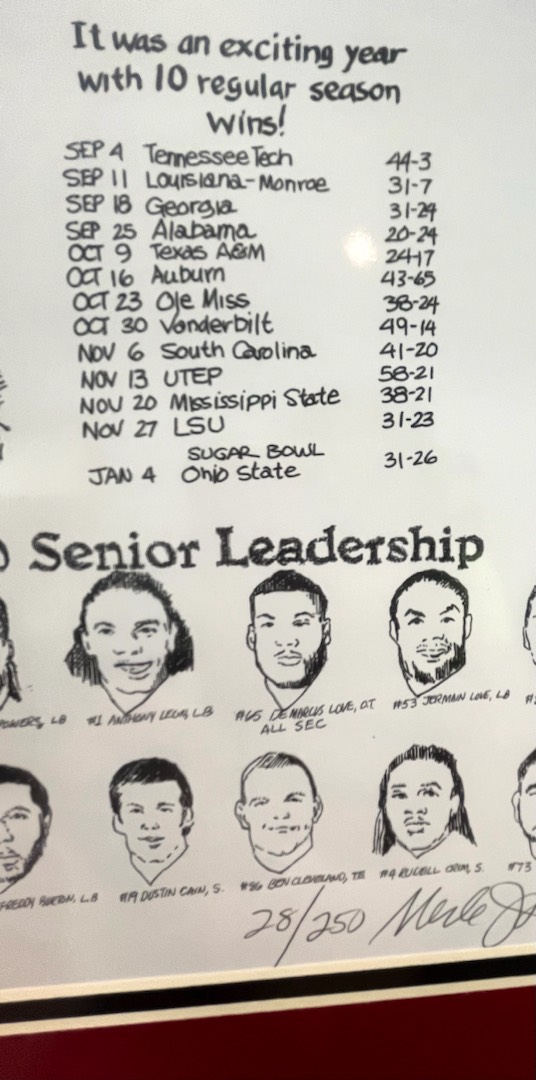 It was an exciting year
with 10 regular season
wins!
SEP 4 Tennessee Tech 44-3
SEP 11 Louisiana-Monroe 31-7
SEP 18 Georgia 31-24
SEP 25 Alabama 20-24
OCT 9 Texas A&M 24-17
OCT 16 Auburn 43-65
OCT 23 Ole Miss 38-24
OCT 30 Vanderbilt 49-14
NOV 6 South Carolina 41-20
NOV 13 UTEP 58-21
NOV 20 Mississippi State 38-21
NOV 27 LSU 31-23
SUGAR BOWL
JAN 4 Ohio State 31-26
Senior Leadership
LB #1 ANTHONY LEON, LB #65 DEMARCUS LOVE, O.T. #53 JERMAIN LOVE, LB
ALL SEC
FREDDY BURTON, L.B #19 DUSTIN CAIN, S. #86 BEN CLEVELAND, TE #4 RUDELL CRIM, S. #73
28/250 Merle